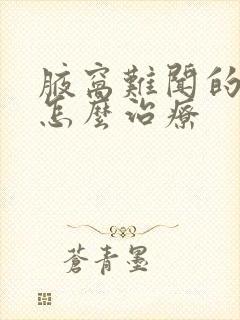 腋窩難聞的
怎麼治療
蒼青墨